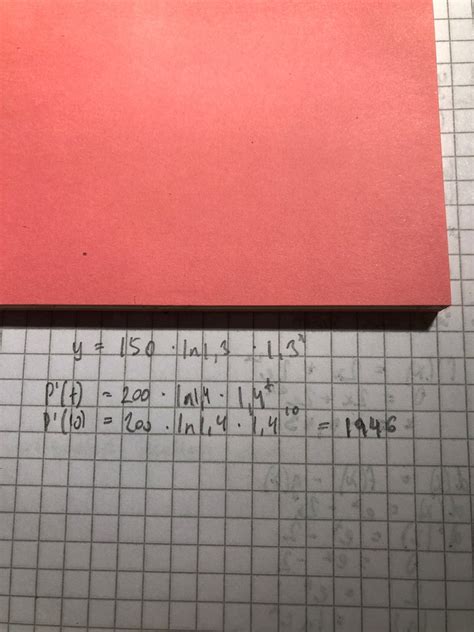 y = 150 · ln1,3 · 1,3ˣ
P'(t) = 200 · ln1,4 · 1,4ᵗ
P'(10) = 200 · ln1,4 · 1,4¹⁰ = 1946